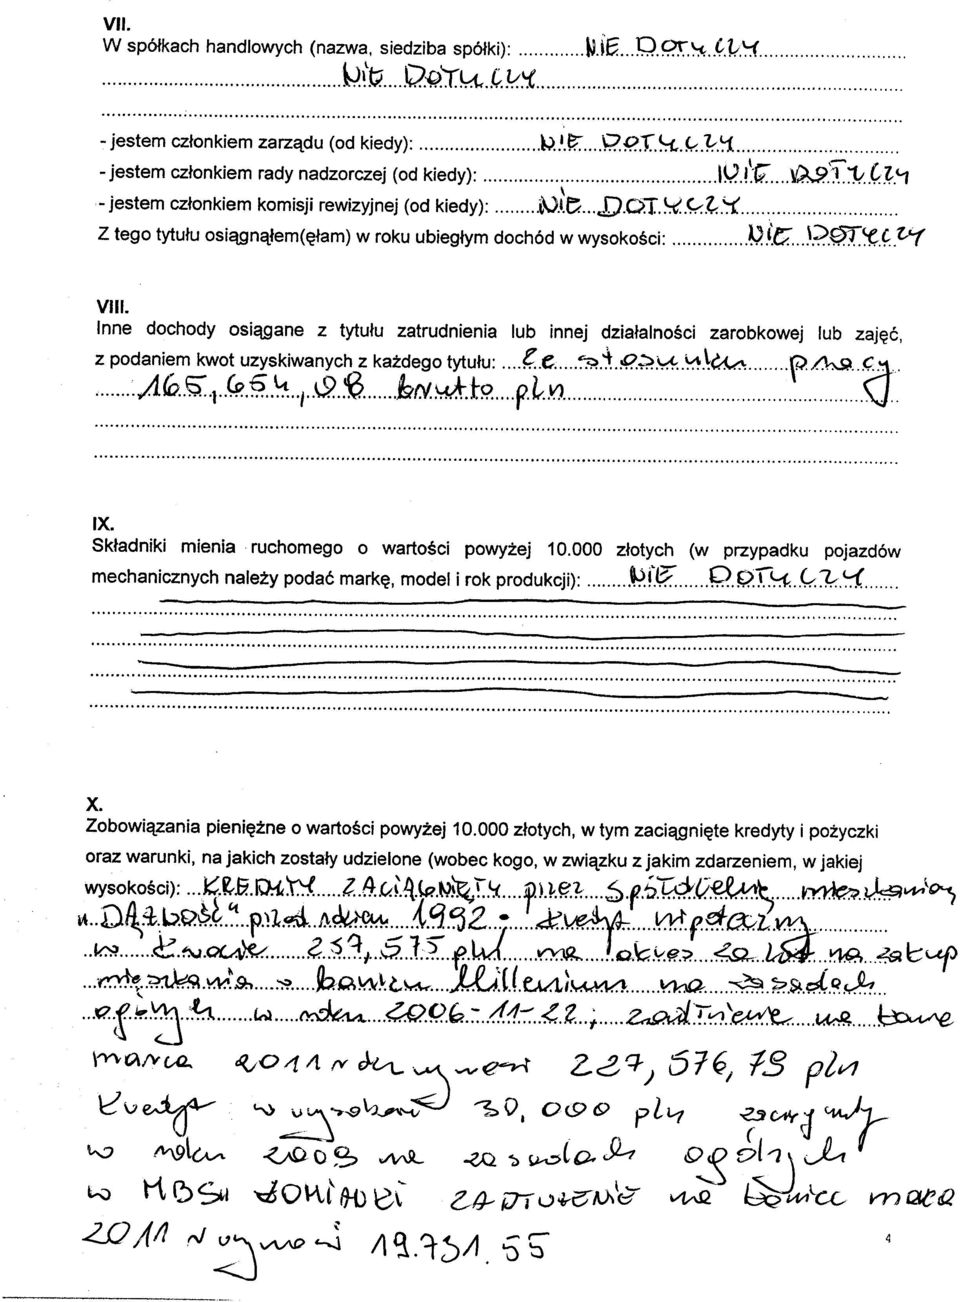 VII.
W spółkach handlowych (nazwa, siedziba spółki): NIE DOTYCZY
NIE DOTYCZY
- jestem członkiem zarządu (od kiedy): NIE DOTYCZY
- jestem członkiem rady nadzorczej (od kiedy): NIE DOTYCZY
- jestem członkiem komisji rewizyjnej (od kiedy): NIE DOTYCZY
Z tego tytułu osiągnąłem(ęłam) w roku ubiegłym dochód w wysokości: NIE DOTYCZY
VIII.
Inne dochody osiągane z tytułu zatrudnienia lub innej działalności zarobkowej lub zajęć,
z podaniem kwot uzyskiwanych z każdego tytułu: Ze stosunku pracy
165,654,08 brutto pln
IX.
Składniki mienia ruchomego o wartości powyżej 10.000 złotych (w przypadku pojazdów
mechanicznych należy podać markę, model i rok produkcji): NIE DOTYCZY
X.
Zobowiązania pieniężne o wartości powyżej 10.000 złotych, w tym zaciągnięte kredyty i pożyczki
oraz warunki, na jakich zostały udzielone (wobec kogo, w związku z jakim zdarzeniem, w jakiej
wysokości): KREDYTY ZACIĄGNIĘTY przez Spółdzielnię mieszkaniową
"DĄŻNOŚĆ" przed rokiem 1992. kredyt hipoteczny
w kwocie 257,575 pln na okres 20 lat na zakup
mieszkania w banku Millenium na zasadach
ogólnych w roku 2006-11-22; zadłużenie na koniec
marca 2011 roku wynosi 227,576,79 pln
kredyt w wysokości 30,000 pln zaciągnięty
w roku 2009 na zasadach ogólnych
w MBSu ŁOMIANKI ZADŁUŻENIE na koniec marca
2011 r wynosi 19.731.55
4